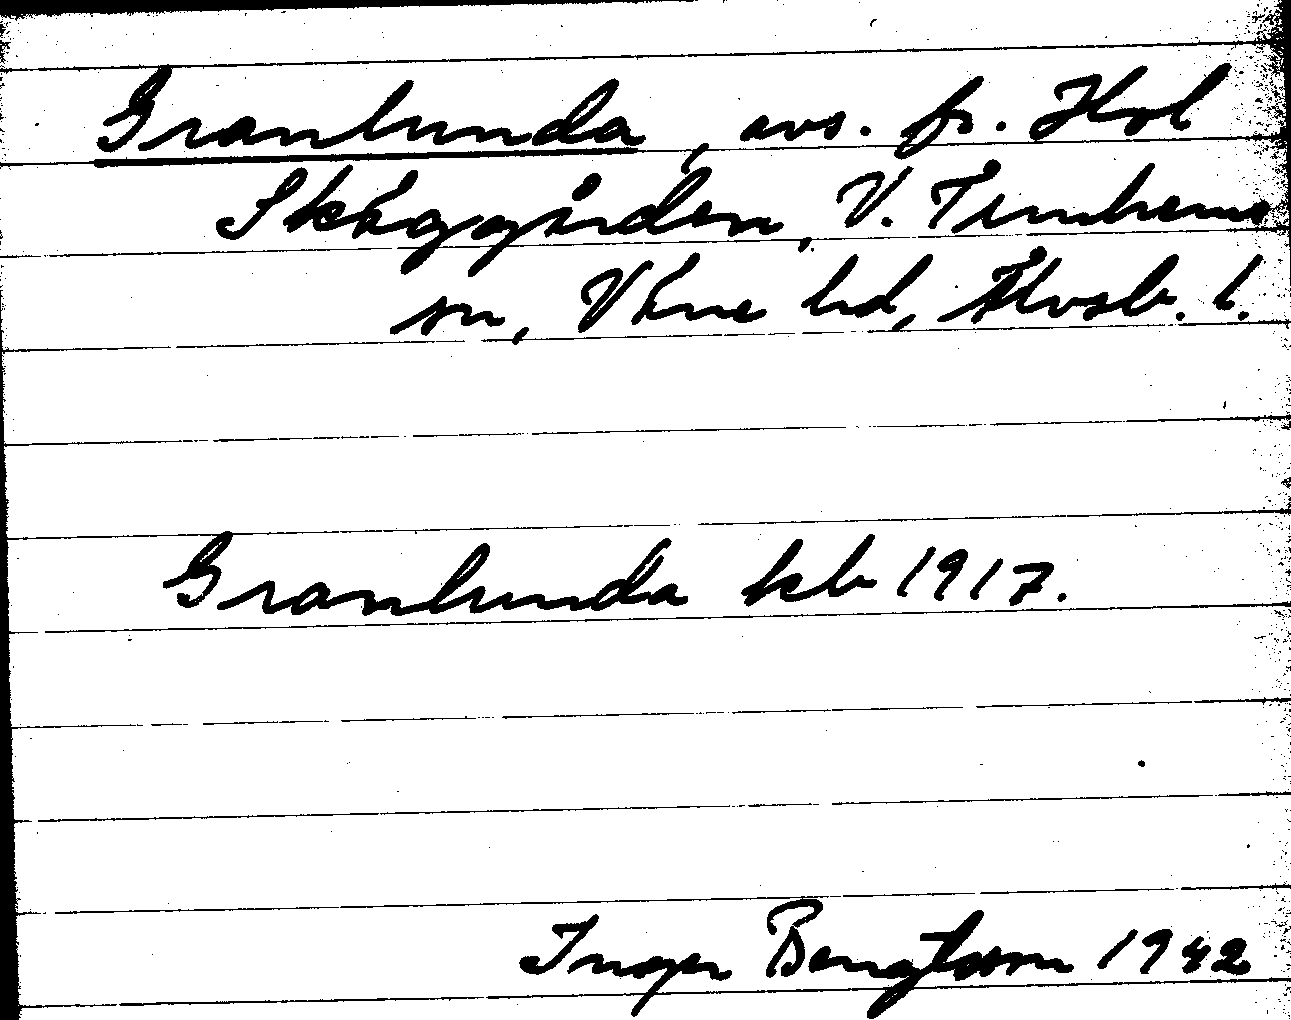 Granlunda, avs. fr. Hol
Skäggården, V. Tunhems
sn, Väne hd, Älvsb. l.
Granlunda kb 1917.
Inger Bengtsson 1942